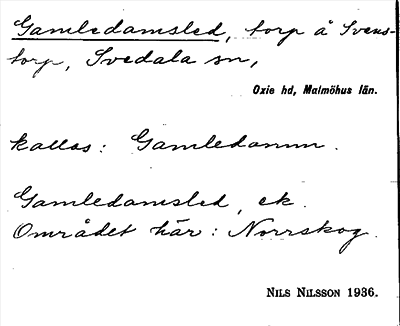 Gamledamsled, torp å Svens-
torp, Svedala sn,
Oxie hd, Malmöhus län.
kallas: Gamledamm.
Gamledamsled, ek.
Området här: Norrskog.
NILS NILSSON 1936.